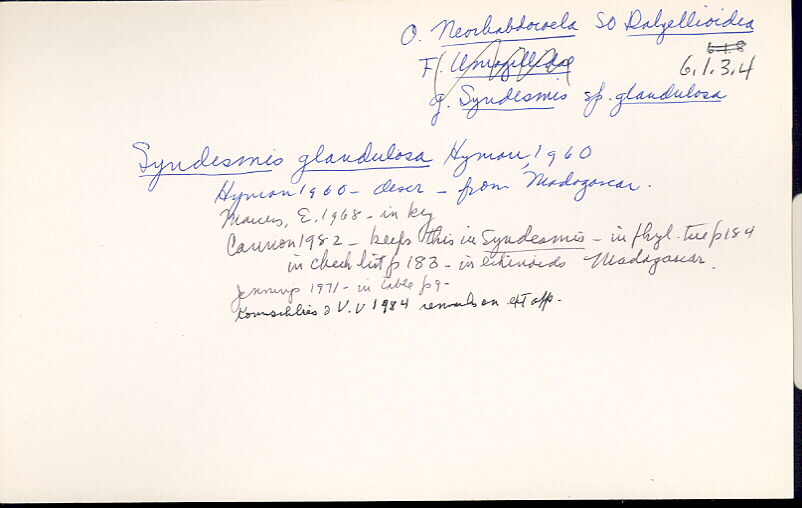 O. Neorhabdocoela SO Dalyellioidea
F. Umagillidae 6.1.8
6.1.3.4
g. Syndesmis sp. glandulosa
Syndesmis glandulosa Hyman, 1960
Hyman 1960 - descr - from Madagascar.
Marcus, E. 1968 - in key
Cannon 1982 - keeps this in Syndesmis - in phyl. tree p184
in check list p 183 - in echinoids Madagascar.
Jennings 1971 - in table p9 -
Komschlies & V.V 1984 remarks on